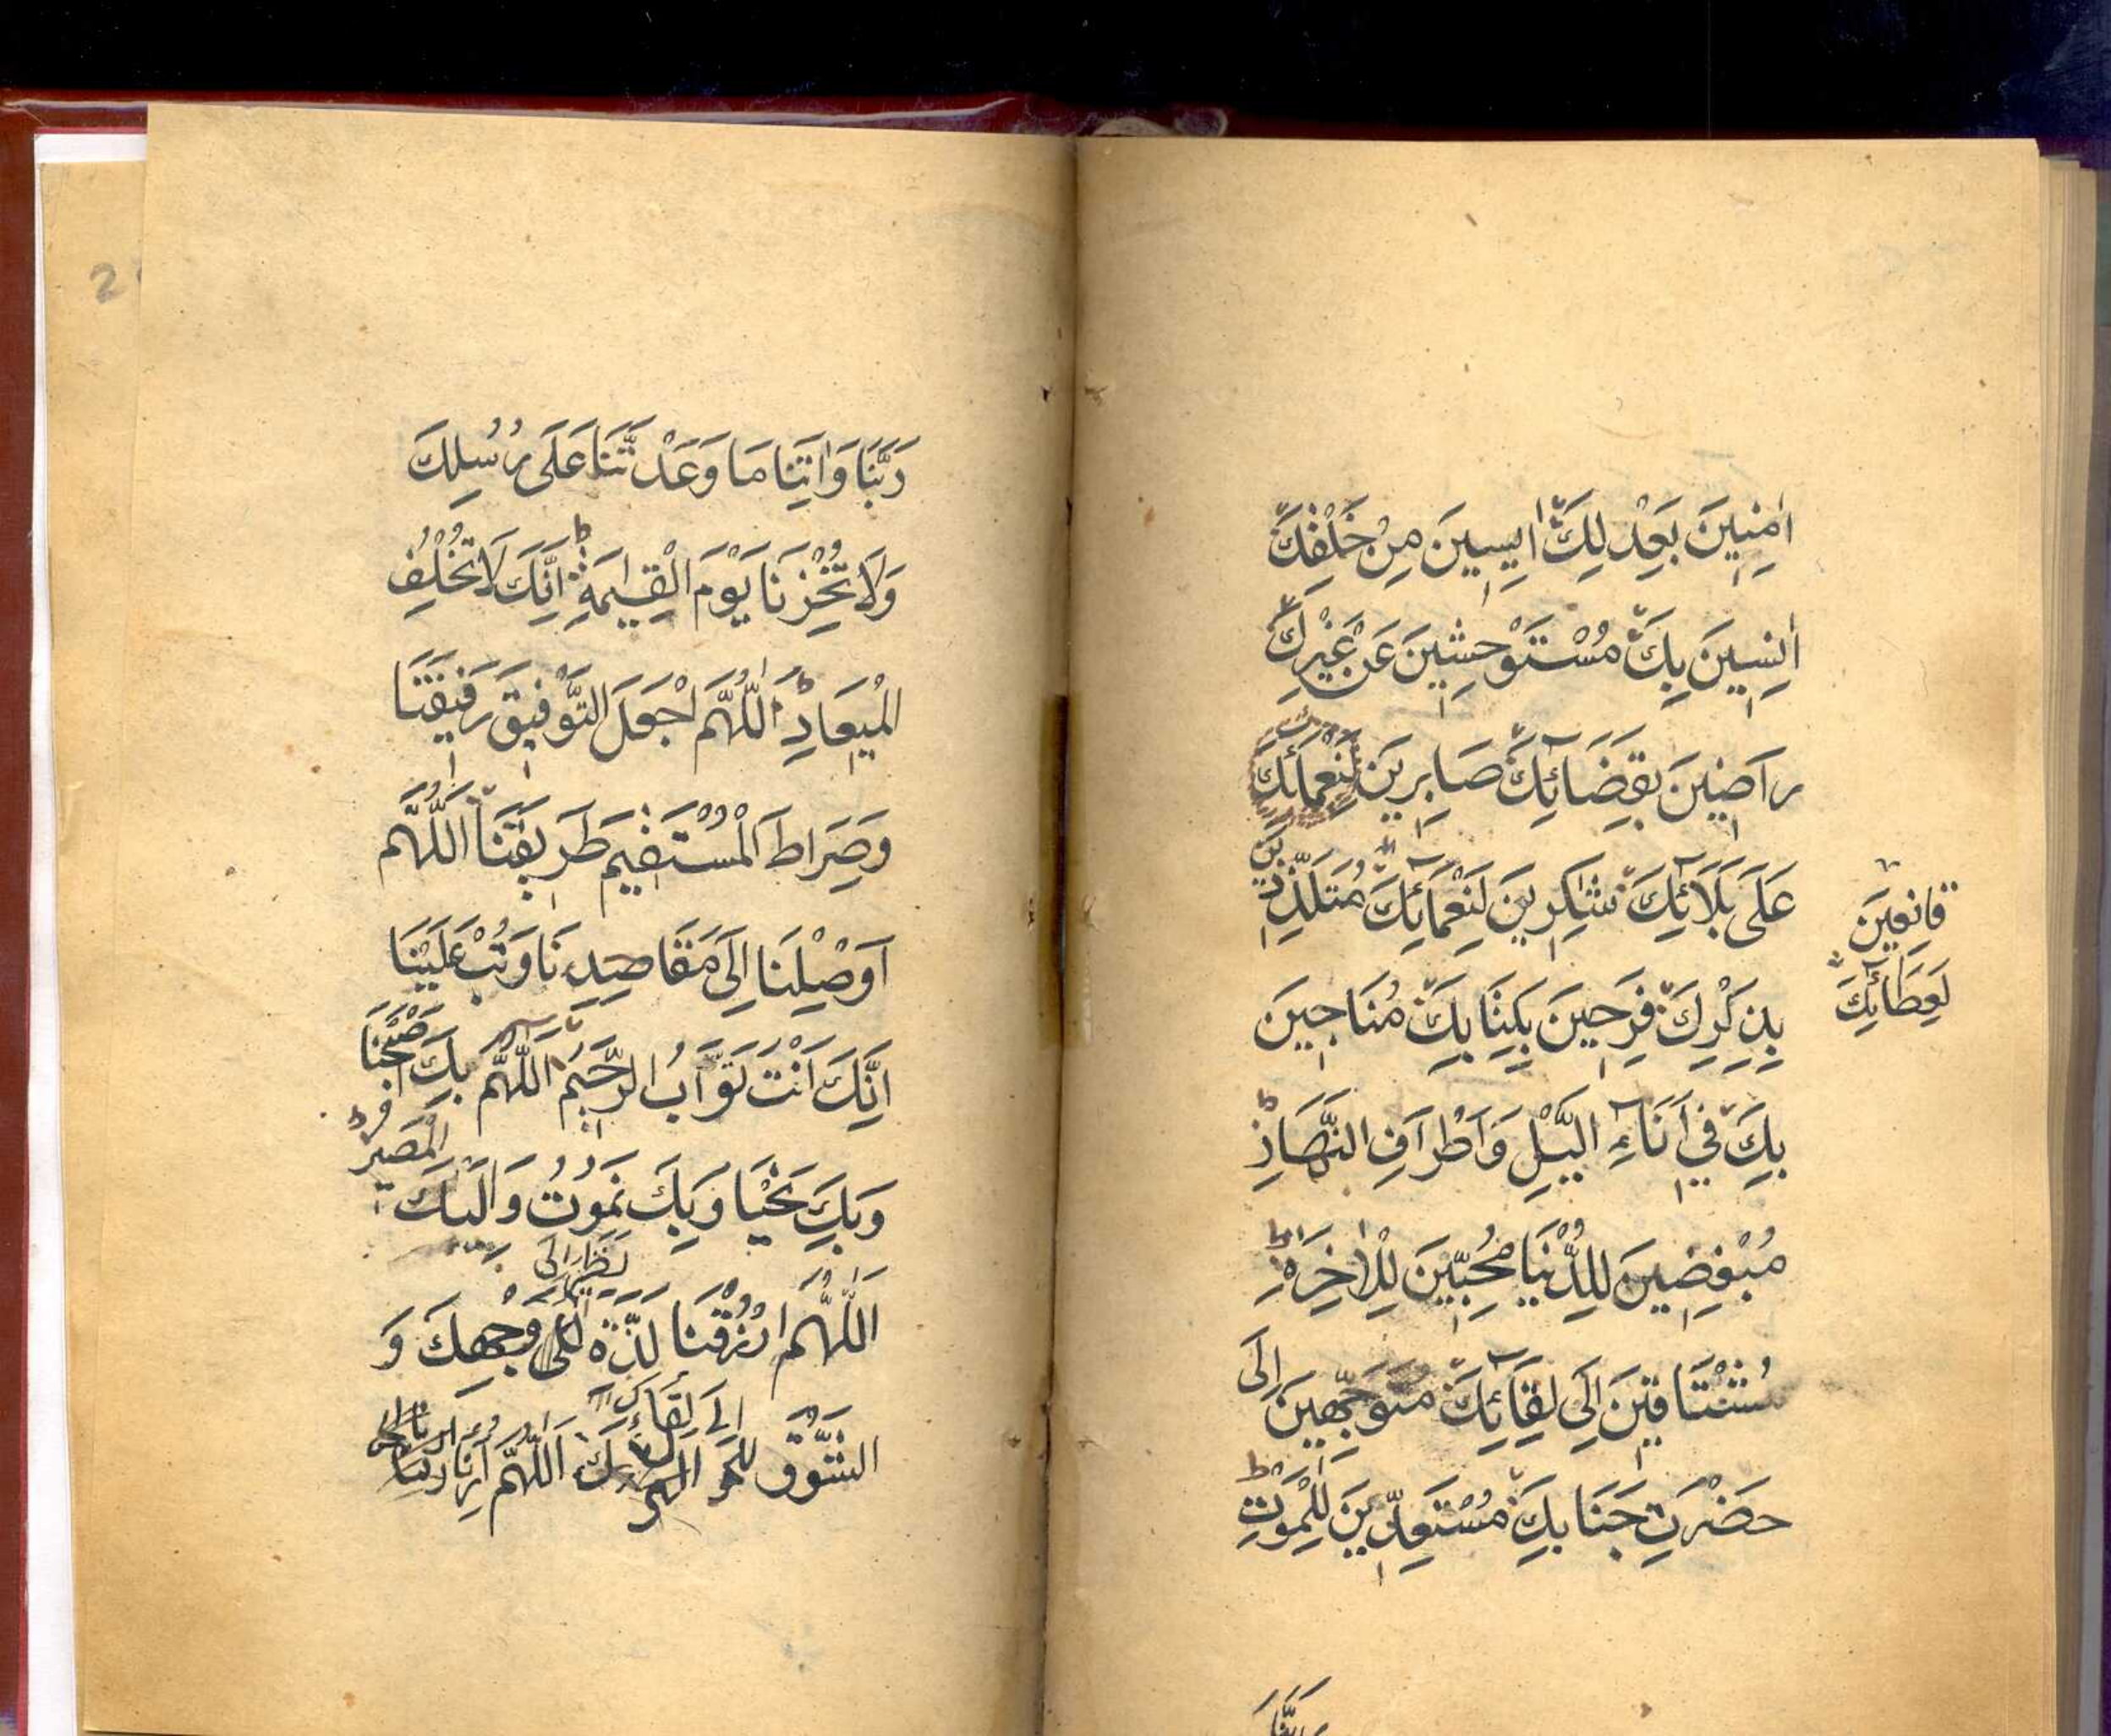 اٰمِنِينَ بَعِدْلِكَ اٰيِسِينَ مِنْ خَلْقِكَ
اٰنِسِينَ بِكَ مُسْتَوْحِشِينَ عَنْ غَيْرِكَ
راضِينَ بِقَضَائِكَ صَابِرِينَ لِنَعمائِكَ
عَلَى بَلَائِكَ شَاكِرِينَ لِنَعْمَائِكَ مُتَلَذِّذِينَ
قانِعِينَ
لِعَطَائِكَ
بِذِكْرِكَ فَرِحِينَ بِكِتَابِكَ مُنَاجِينَ
بِكَ فِي اَنَاءِ الَّيْلِ وَاَطْرَافِ النَّهَارِ
مُبْغِضِينَ لِلدُّنْيَا مُحِبِّينَ لِلْاٰخِرَةِ
مُشْتَاقِينَ اِلَى لِقَائِكَ مُتَوَجِّهِينَ اِلَى
حَضْرَتِ جَنَابِكَ مُسْتَعِدِّينَ لِلْمَوْتِ
رَبَّنَا
رَبَّنَا وَاٰتِنَا مَا وَعَدْتَّنَا عَلَى رُسُلِكَ
وَلَا تُخْزِنَا يَوْمَ الْقِيٰمَةِ ط اِنَّكَ لَا تُخْلِفُ
الْمِيعَادِ ط اَللّٰهُمَّ اجْعَلِ التَّوْفِيقَ رَفِيقَنَا
وَصِرَاطَ الْمُسْتَقِيمَ طَرِيقَنَا اَللّٰهُمَّ
اَوْصِلْنَا اِلَى مَقَاصِدِنَا وَتُبْ عَلَيْنَا
اِنَّكَ اَنْتَ تَوَّابُ الرَّحِيمُ اَللّٰهُمَّ بِكَ اَصْبَحْنَا
وَبِكَ نَحْيَا وَبِكَ نَمُوتُ وَاِلَيكَ الْمَصِيرُ ط
اَللّٰهُمَّ ارْزُقْنَا لَذَّةَ نَظَرِ اِلَى وَجْهِكَ وَ
الشَّوْقِ اِلَى لِقَائِكَ اَللّٰهُمَّ اَرِنَا